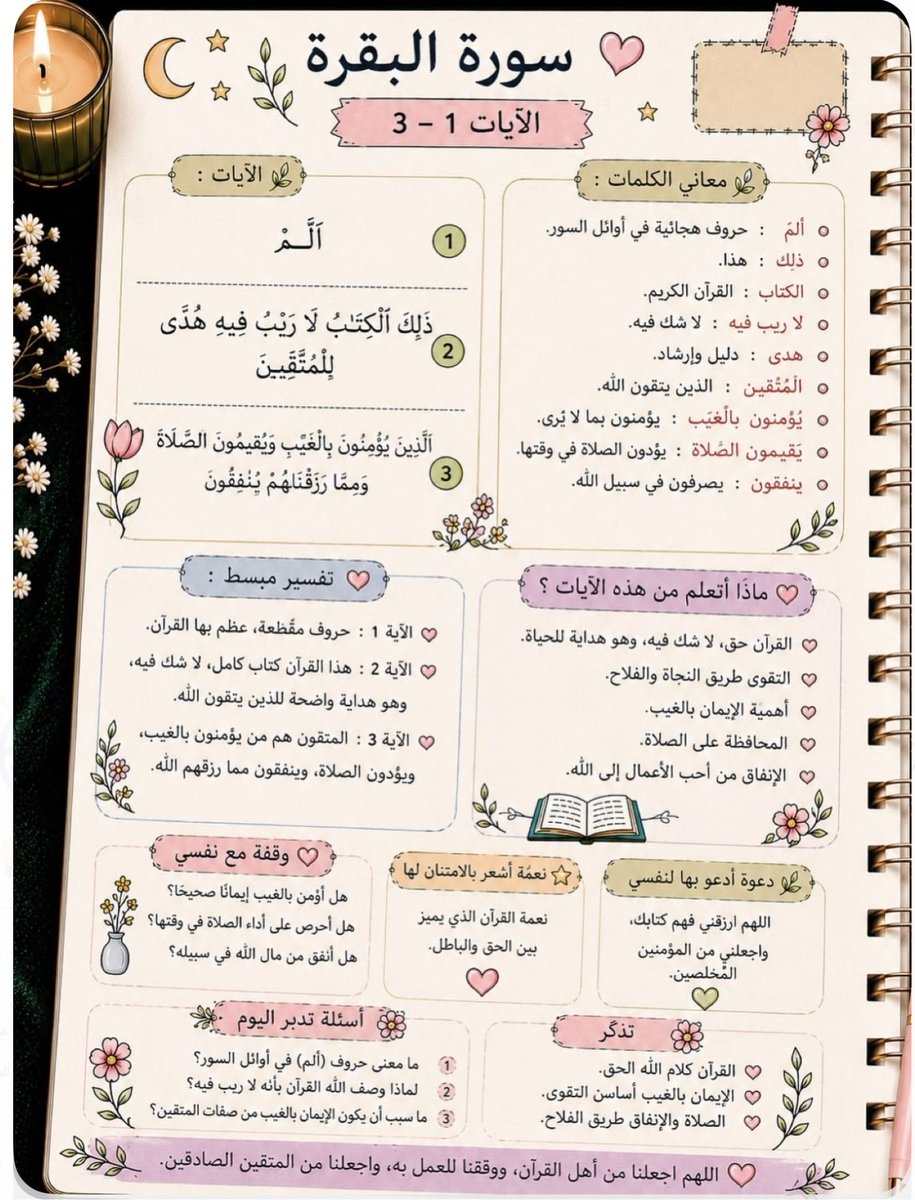 سورة البقرة
الآيات 1 – 3
معاني الكلمات :
ألمَ : حروف هجائية في أوائل السور.
ذلِك : هذا.
الكتاب : القرآن الكريم.
لا ريب فيه : لا شك فيه.
هدى : دليل وإرشاد.
الْمُتُقين : الذين يتقون الله.
يُؤمنون بالْغيَب : يؤمنون بما لا يُرى.
يَقيمون الصَّلاة : يؤدون الصلاة في وقتها.
ينفقون : يصرفون في سبيل الله.
الآيات :
1 اَلَّــمْ
2 ذَلِكَ ٱلْكِتَـٰبُ لَا رَيْبُ فِيهِ هُدًى
لِلْمُتَّقِينَ
3 اَلَّذِينَ يُؤْمِنُونَ بِالْغَيْبِ وَيُقيمُونَ الصَّلَاةَ
وَمِمَّا رَزَقْنَاهُمْ يُنْفِقُونَ
ماذَا أتعلم من هذه الآيات ؟
القرآن حق، لا شك فيه، وهو هداية للحياة.
التقوى طريق النجاة والفلاح.
أهمية الإيمان بالغيب.
المحافظة على الصلاة.
الإنفاق من أحب الأعمال إلى الله.
تفسير مبسط :
الآية 1 : حروف مقْطعة، عظم بها القرآن.
الآية 2 : هذا القرآن كتاب كامل، لا شك فيه،
وهو هداية واضحة للذين يتقون الله.
الآية 3 : المتقون هم من يؤمنون بالغيب،
ويؤدون الصلاة، وينفقون مما رزقهم الله.
دعوة أدعو بها لنفسي
اللهم ارزقني فهم كتابك،
واجعلني من المؤمنين
المْخلصين.
نعمّة أشعر بالامتنان لها
نعمة القرآن الذي يميز
بين الحق والباطل.
وقفة مع نفسي
هل أؤمن بالغيب إيمانًا صحيحًا؟
هل أحرص على أداء الصلاة في وقتها؟
هل أنفق من مال الله في سبيله؟
تذكّر
القرآن كلام الله الحق.
الإيمان بالغيب أساسن التقوى.
الصلاة والإنفاق طريق الفلاح.
أسئلة تدبر اليوم
1 ما معنى حروف (ألم) في أوائل السور؟
2 لماذا وصف الله القرآن بأئه لا ريب فيه؟
3 ما سبب أن يكون الإيمان بالغيب من صفات المتقين؟
اللهم اجعلنا من أهل القرآن، ووفقنا للعمل به، واجعلنا من المتقين الصادقين.